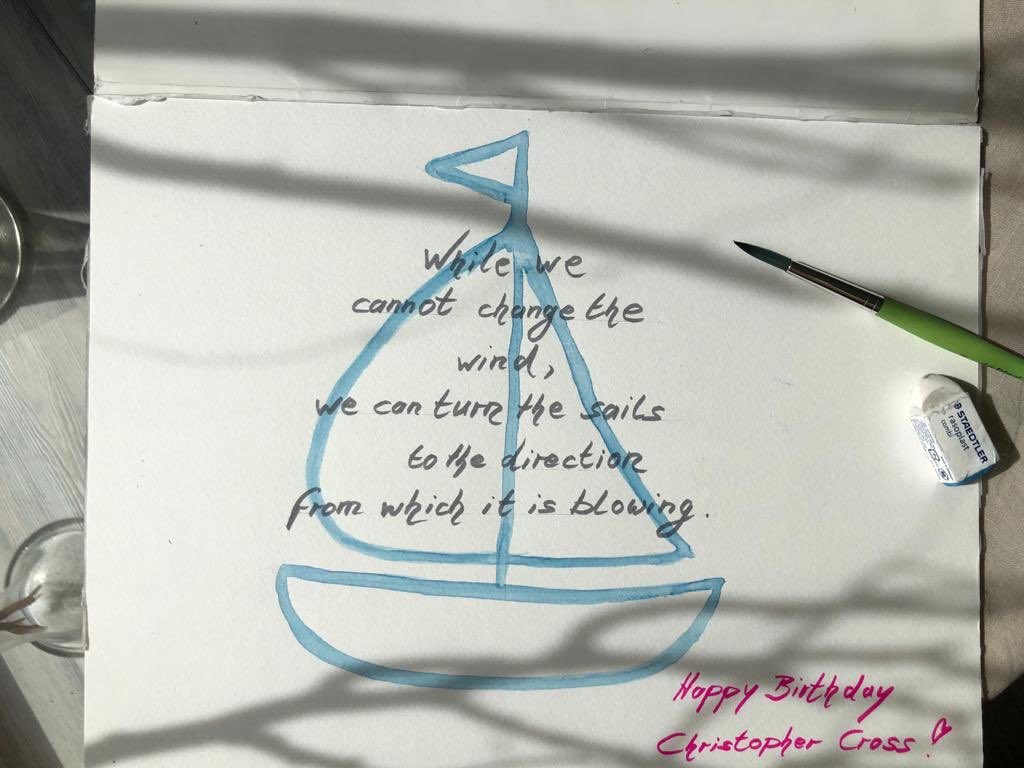 While we
cannot change the
wind,
we can turn the sails
to the direction
from which it is blowing.
STAEDTLER
rasoplast
combi
Happy Birthday
Christopher Cross!